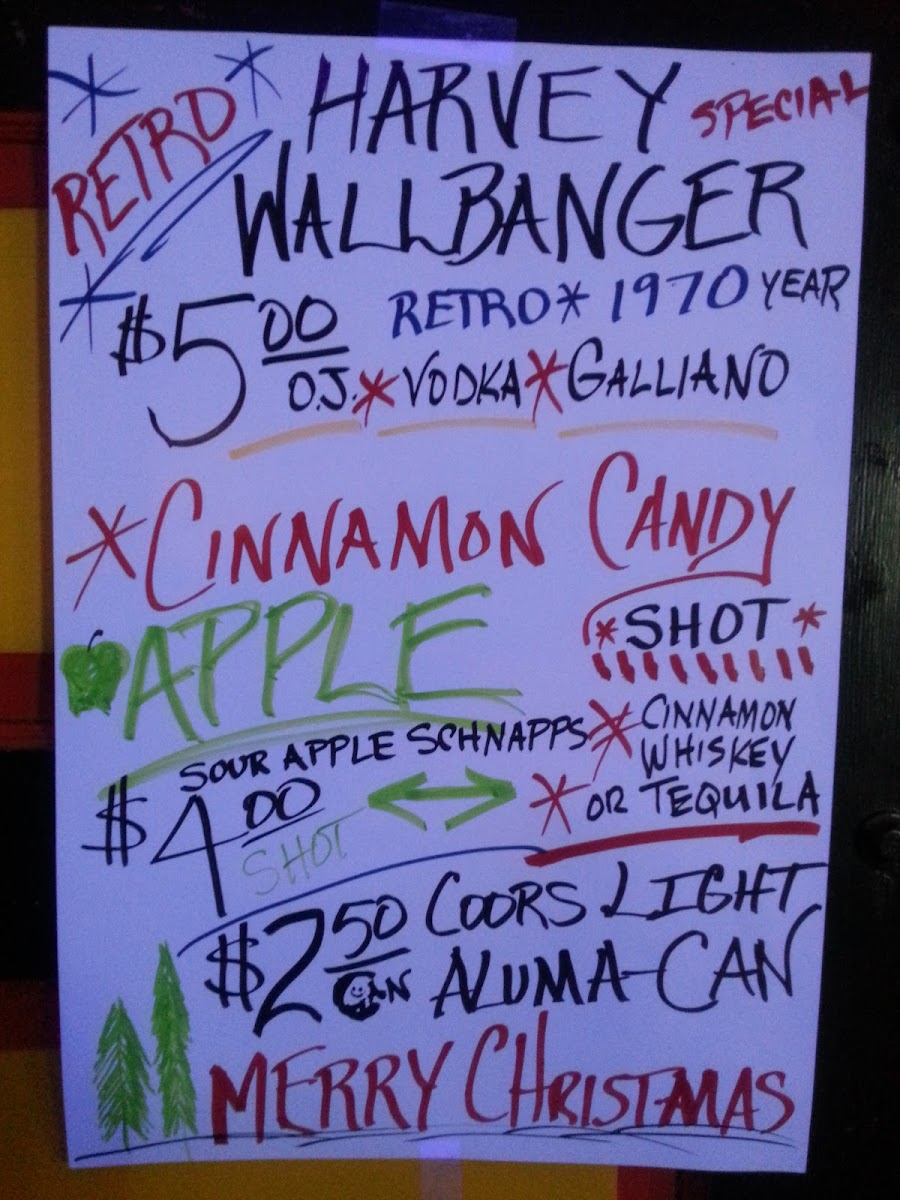 RETRO HARVEY SPECIAL
WALLBANGER
$5.00 RETRO * 1970 YEAR
O.J. * VODKA * GALLIANO
* CINNAMON CANDY
APPLE * SHOT *
SOUR APPLE SCHNAPPS * CINNAMON
WHISKEY
$4.00 SHOT * OR TEQUILA
$2.50 CAN COORS LIGHT
ALUMA-CAN
MERRY CHRISTMAS